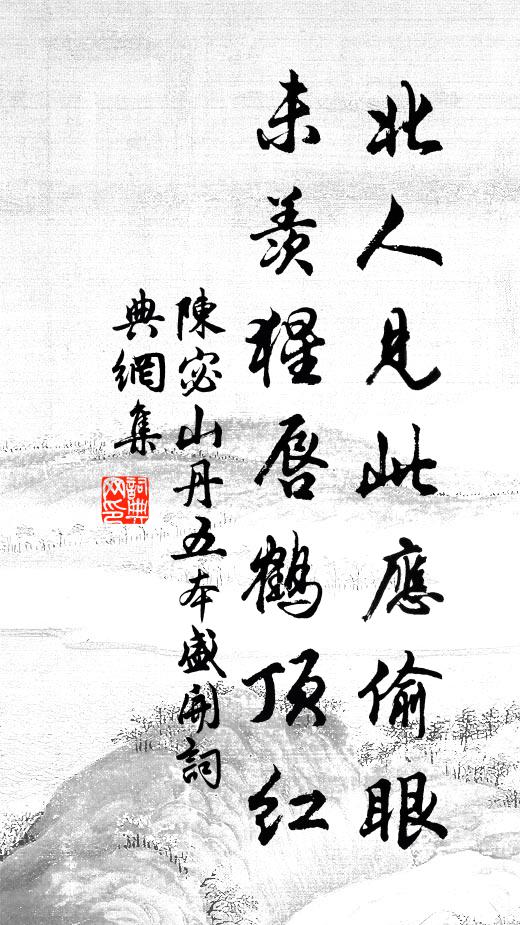 北人見此應偷眼
未羨猩唇鶴頂紅
陳宓山丹五本盛開詞
典網集
詞典
网印